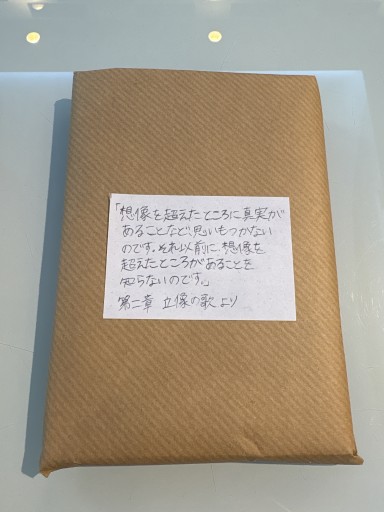 「想像を超えたところに真実が
あることなど、思いもつかない
のです。それ以前に、想像を
超えたところがあることを
知らないのです。」
第二章 立像の歌 より